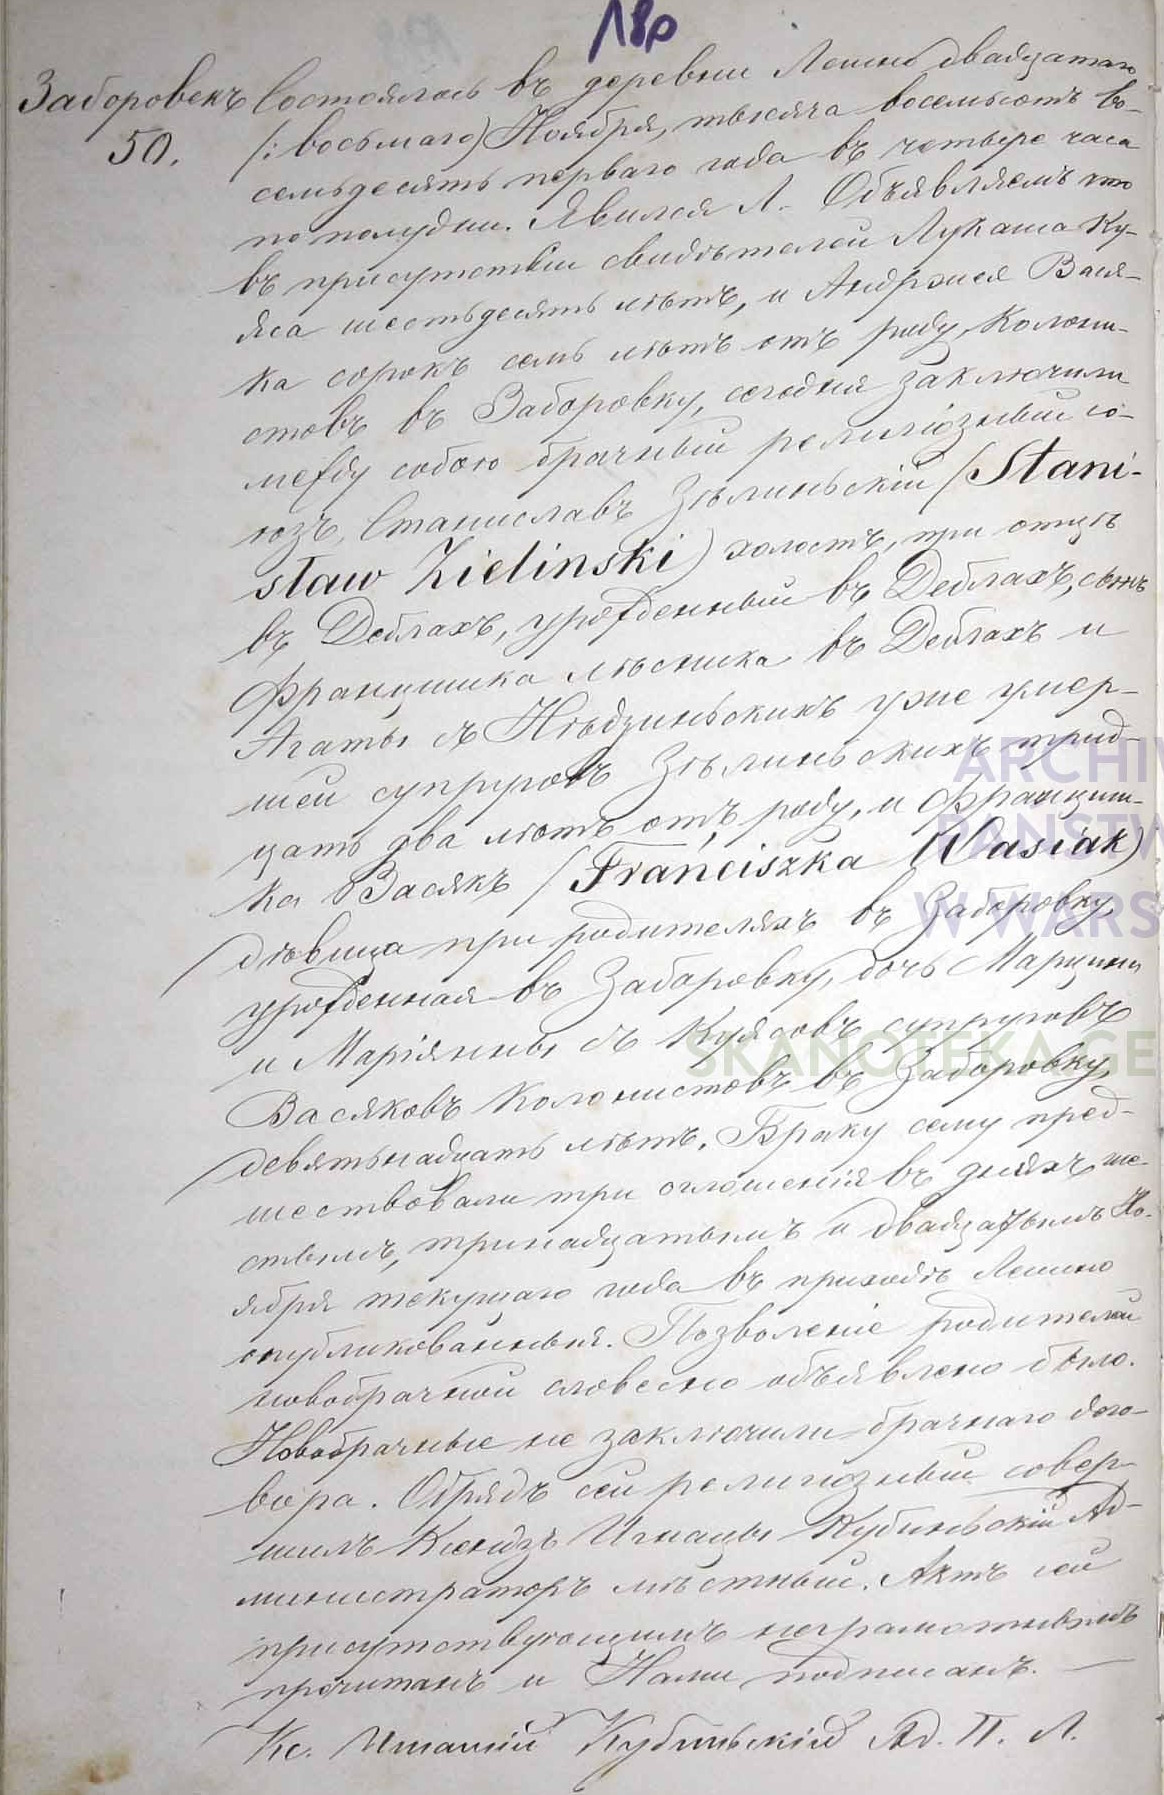 180
Заборовекъ Состоялось въ деревни Лешно двадцатаго
50. (: восьмаго) Ноября, тысяча восемьсотъ во-
семьдесятъ перваго года въ четыре часа
по полудни. Явился Л. Объявляемъ что
въ присутствіи свидѣтелей Лукаша Ку-
яса шестьдесятъ лѣтъ, и Андржея Вася-
ка сорокъ семь лѣтъ отъ роду, Колони-
стовъ въ Заборовку, сегодня заключили
между собою брачный религіозный со-
юзъ, Станиславъ Зѣлиньскій (Stani-
sław Zieliński) холостъ, при отцѣ
въ Дебляхъ, урожденный въ Дебляхъ, сынъ
Францишка лѣсника въ Дебляхъ и
Агаты съ Нѣдзиньскихъ уже умер-
шей супруговъ Зѣлиньскихъ трид-
цать два лѣтъ отъ роду, и Францишка
Васякъ (Franciszka Wasiak)
дѣвица при родителяхъ въ Заборовку,
урожденная въ Заборовку, дочь Марцина
и Маріянны съ Куясовъ супруговъ
Васяковъ Колонистовъ въ Заборовку,
девятьнадцать лѣтъ. Браку сему пред-
шествовали три оглошенія въ дняхъ ше-
стымъ, тринадцатымъ и двадцатымъ Но-
ября текущаго года въ приходѣ Лешно
опубликованныя. Позволеніе родителей
новобрачной словесно объявлено было.
Новобрачные не заключили брачнаго дого-
вора. Обрядъ сей религіозный совер-
шилъ Ксендзъ Игнацы Кубиньскій Ад-
министраторъ мѣстный. Актъ сей
присутствующимъ неграмотнымъ
прочитанъ и Нами подписанъ. —
Кс. Игнацій Кубиньскій Ад. П. Л.
ARCHIW
PAŃSTW
W WARS
SKANOTEKA.GE